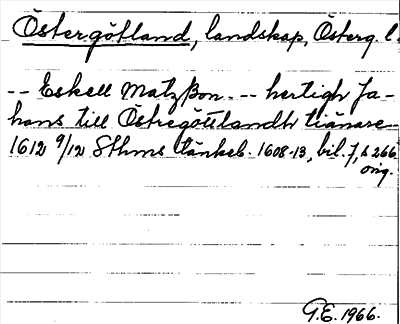 Östergötland, landskap, Österg. l.
-- Eskell Matzßon -- hertigh Ja-
hans till Östregöttlandh tiänare
1612 9/12 Sthms tänkeb. 1608-13, bil. 7, s 266
orig.
G.E. 1966.